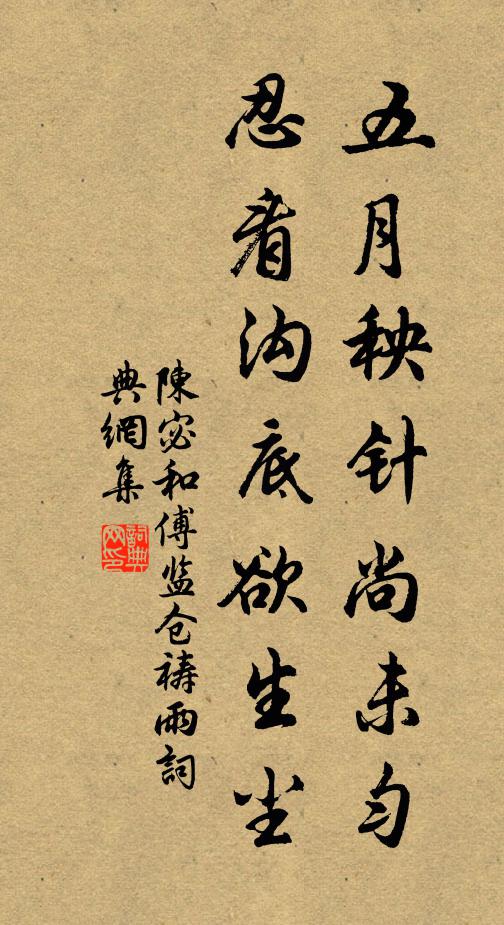 五月秧针尚未匀
忍看沟底欲生尘
陳宓和傅监仓祷雨詞
典網集
詞典网印